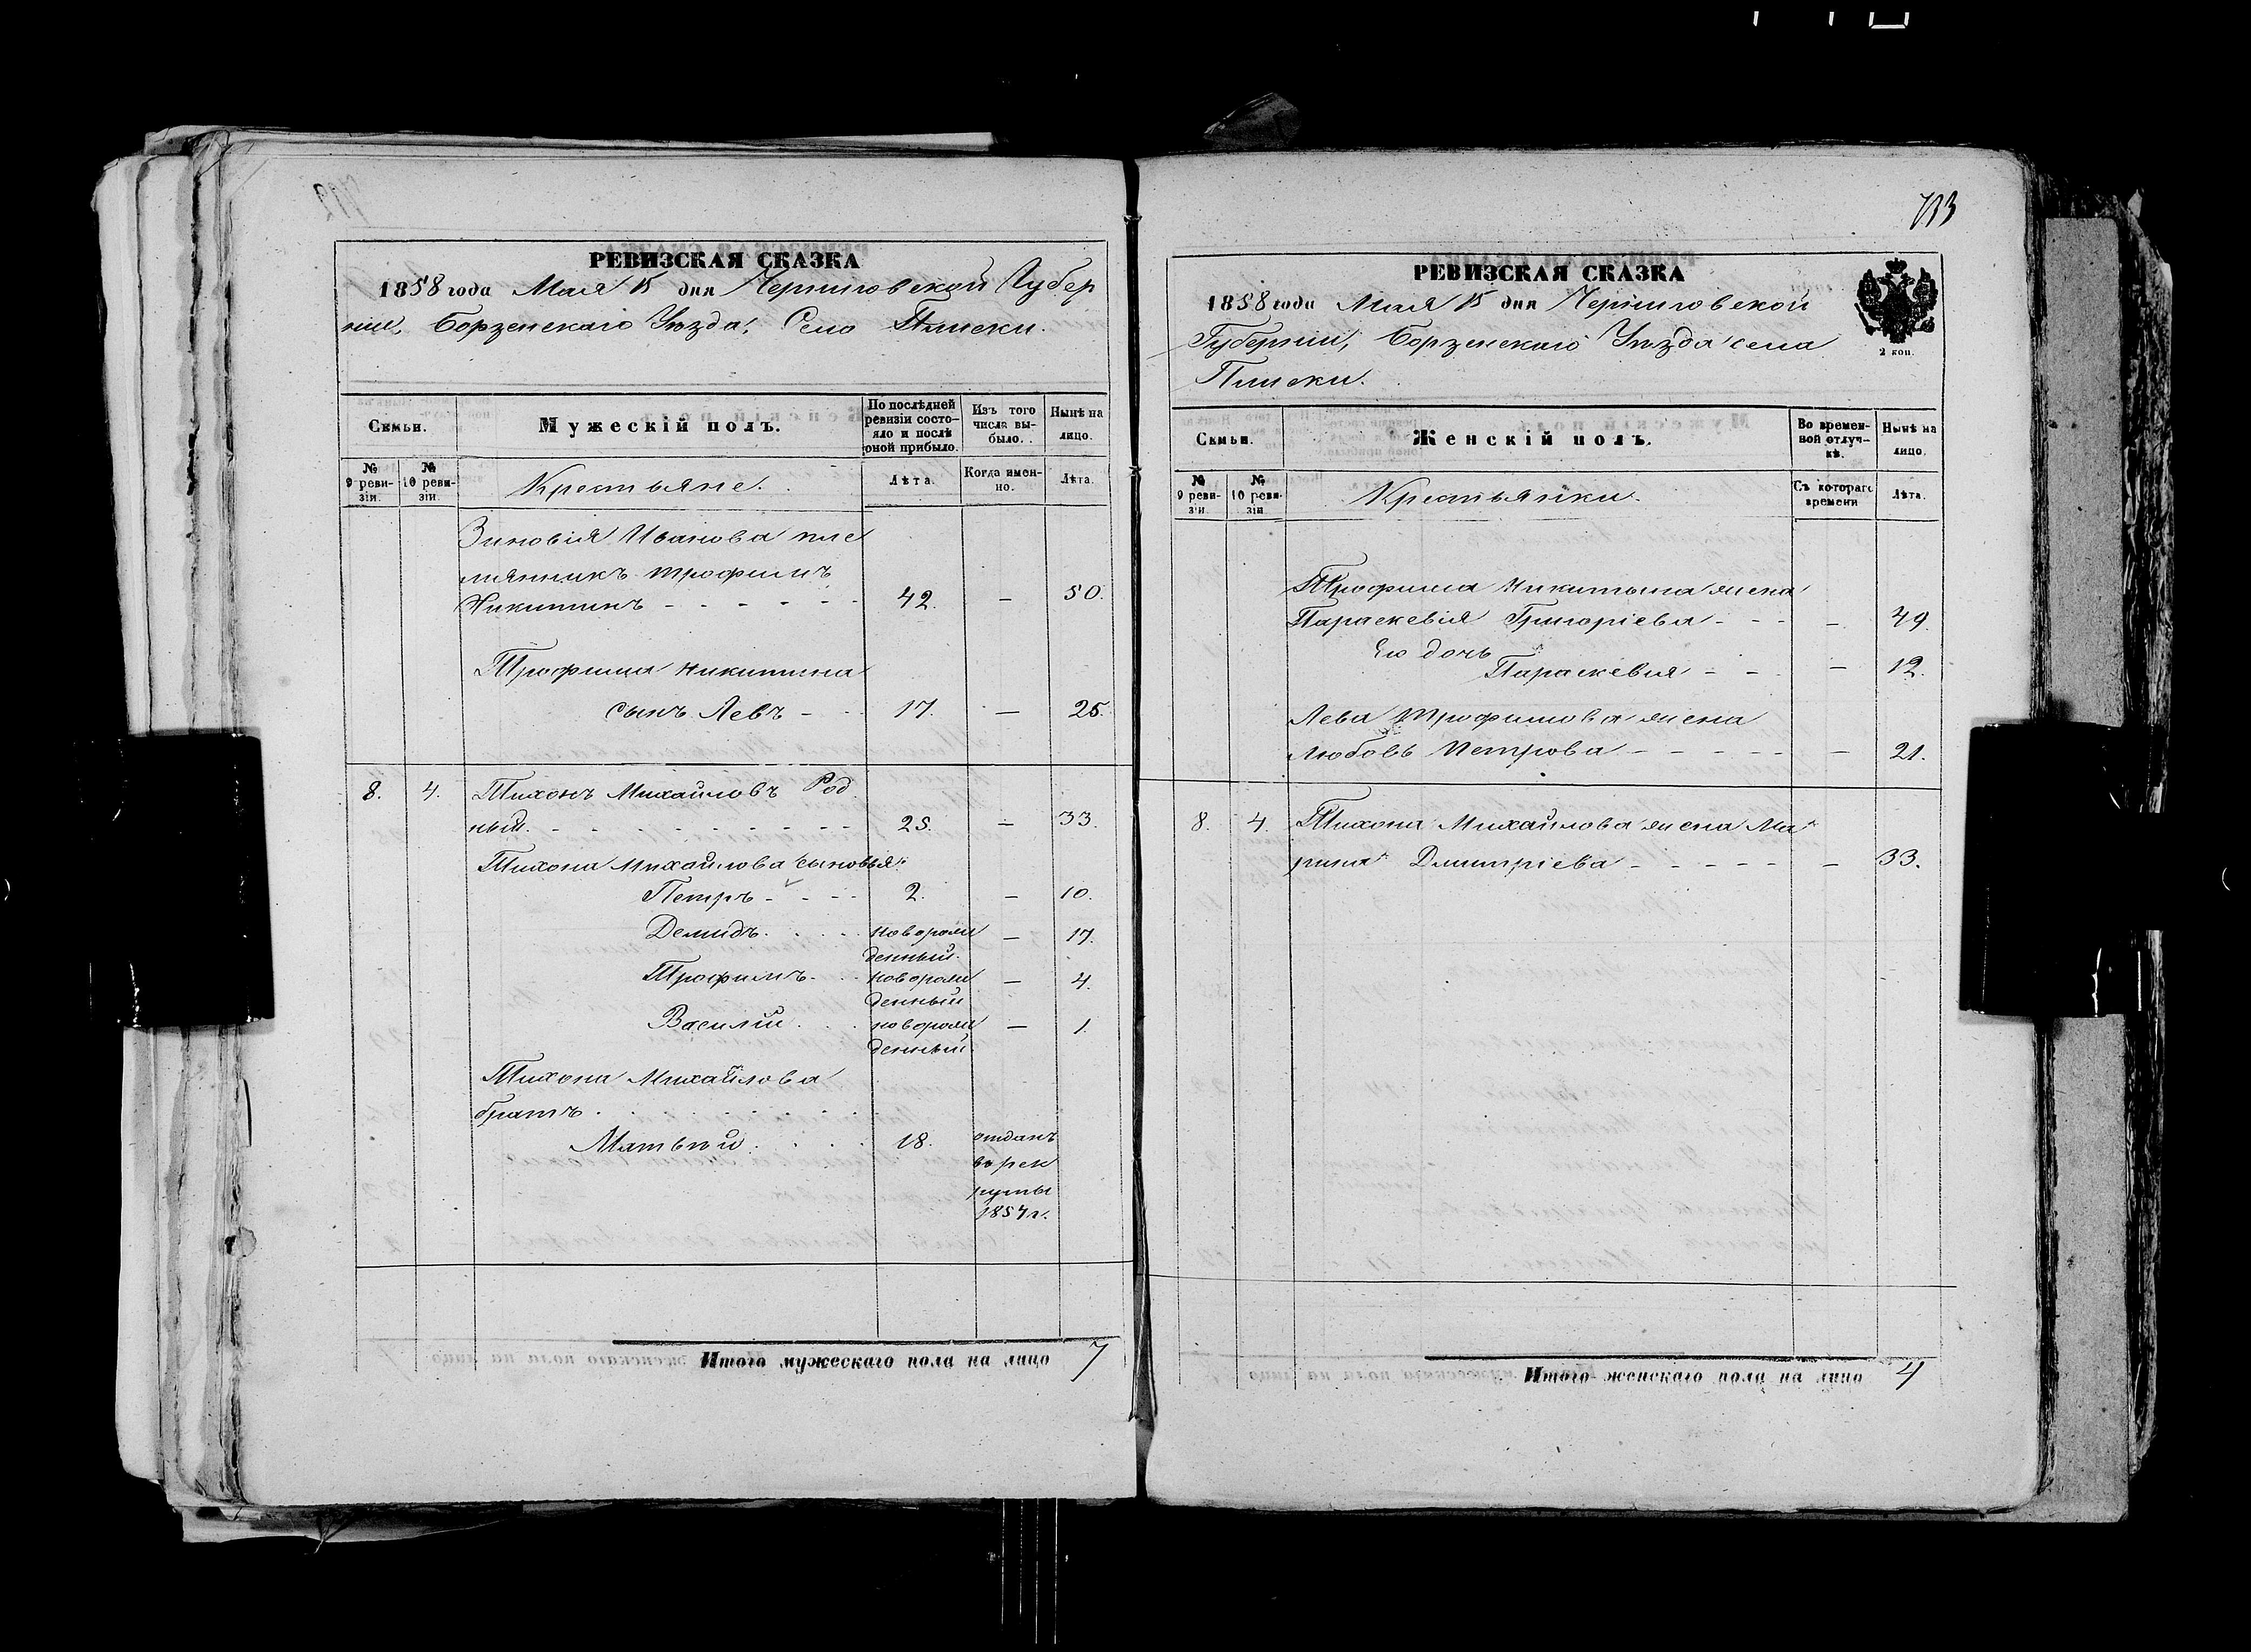 РЕВИЗСКАЯ СКАЗКА
1858 года Мая 15 дня Черниговской Губер
нии, Борзенскаго Уѣзда, Село Плиски.
Семьи.
Мужескій полъ.
По послѣдней ревизіи состо-
яло и послѣ оной прибыло.
Изъ того числа вы-
было.
Нынѣ на лицо.
№ 9 реви-
зіи.
№ 10 реви-
зіи.
Крестьяне.
Лѣта.
Когда имен-
но.
Лѣта.
Зиновія Иванова пле
мянникъ Трофимъ
Никитинъ - - - - - - 42. — 50.
Трофима Никитина
сынъ Левъ - - 17. — 25.
8. 4. Тихонъ Михайловъ Род
ный. - - - - - - - - 25. — 33.
Тихона Михайлова сыновья:
Петръ - - - - 2. — 10.
Демидъ. . . . новорож
денный. — 17.
Трофимъ. . . новорож
денный — 4.
Василій. . . . новорож
денный. — 1.
Тихона Михайлова
братъ . . . . . . . .
Матвѣй . . . . 18. отданъ
въ рек
руты
1854 г.
Итого мужескаго пола на лицо 7
713
РЕВИЗСКАЯ СКАЗКА
1858 года Мая 15 дня Черниговской
Губерніи, Борзенскаго Уѣзда села
Плиски.
2 коп.
Семьи.
Женскій полъ.
Во времен-
ной отлуч-
кѣ.
Нынѣ на лицо.
№ 9 реви-
зіи
№ 10 реви-
зіи
Крестьянки.
Съ котораго времени
Лѣта.
Трофима Никитина жена
Параскевія Григоріева - - - — 49.
Его дочь
Параскевія - - — 12.
Лева Трофимова жена
Любовь Петрова - - - - - — 21.
8. 4. Тихона Михайлова жена Ма
рина Дмитріева - - - - - — 33.
Итого женскаго пола на лицо 4